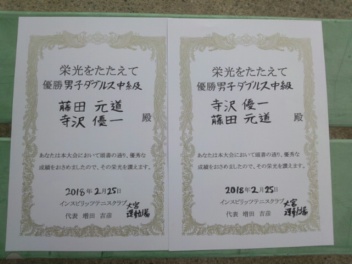 栄光をたたえて
優勝男子ダブルス中級
藤田 元道
寺沢 優一
殿
あなたは本大会において頭書の通り、優秀な
成績をおさめましたので、その栄光を讃えます。
2018年2月25日
インスピリッツテニスクラブ
代表 増田 吉彦
栄光をたたえて
優勝男子ダブルス中級
寺沢 優一
藤田 元道
殿
あなたは本大会において頭書の通り、優秀な
成績をおさめましたので、その栄光を讃えます。
2018年2月25日
インスピリッツテニスクラブ
代表 増田 吉彦